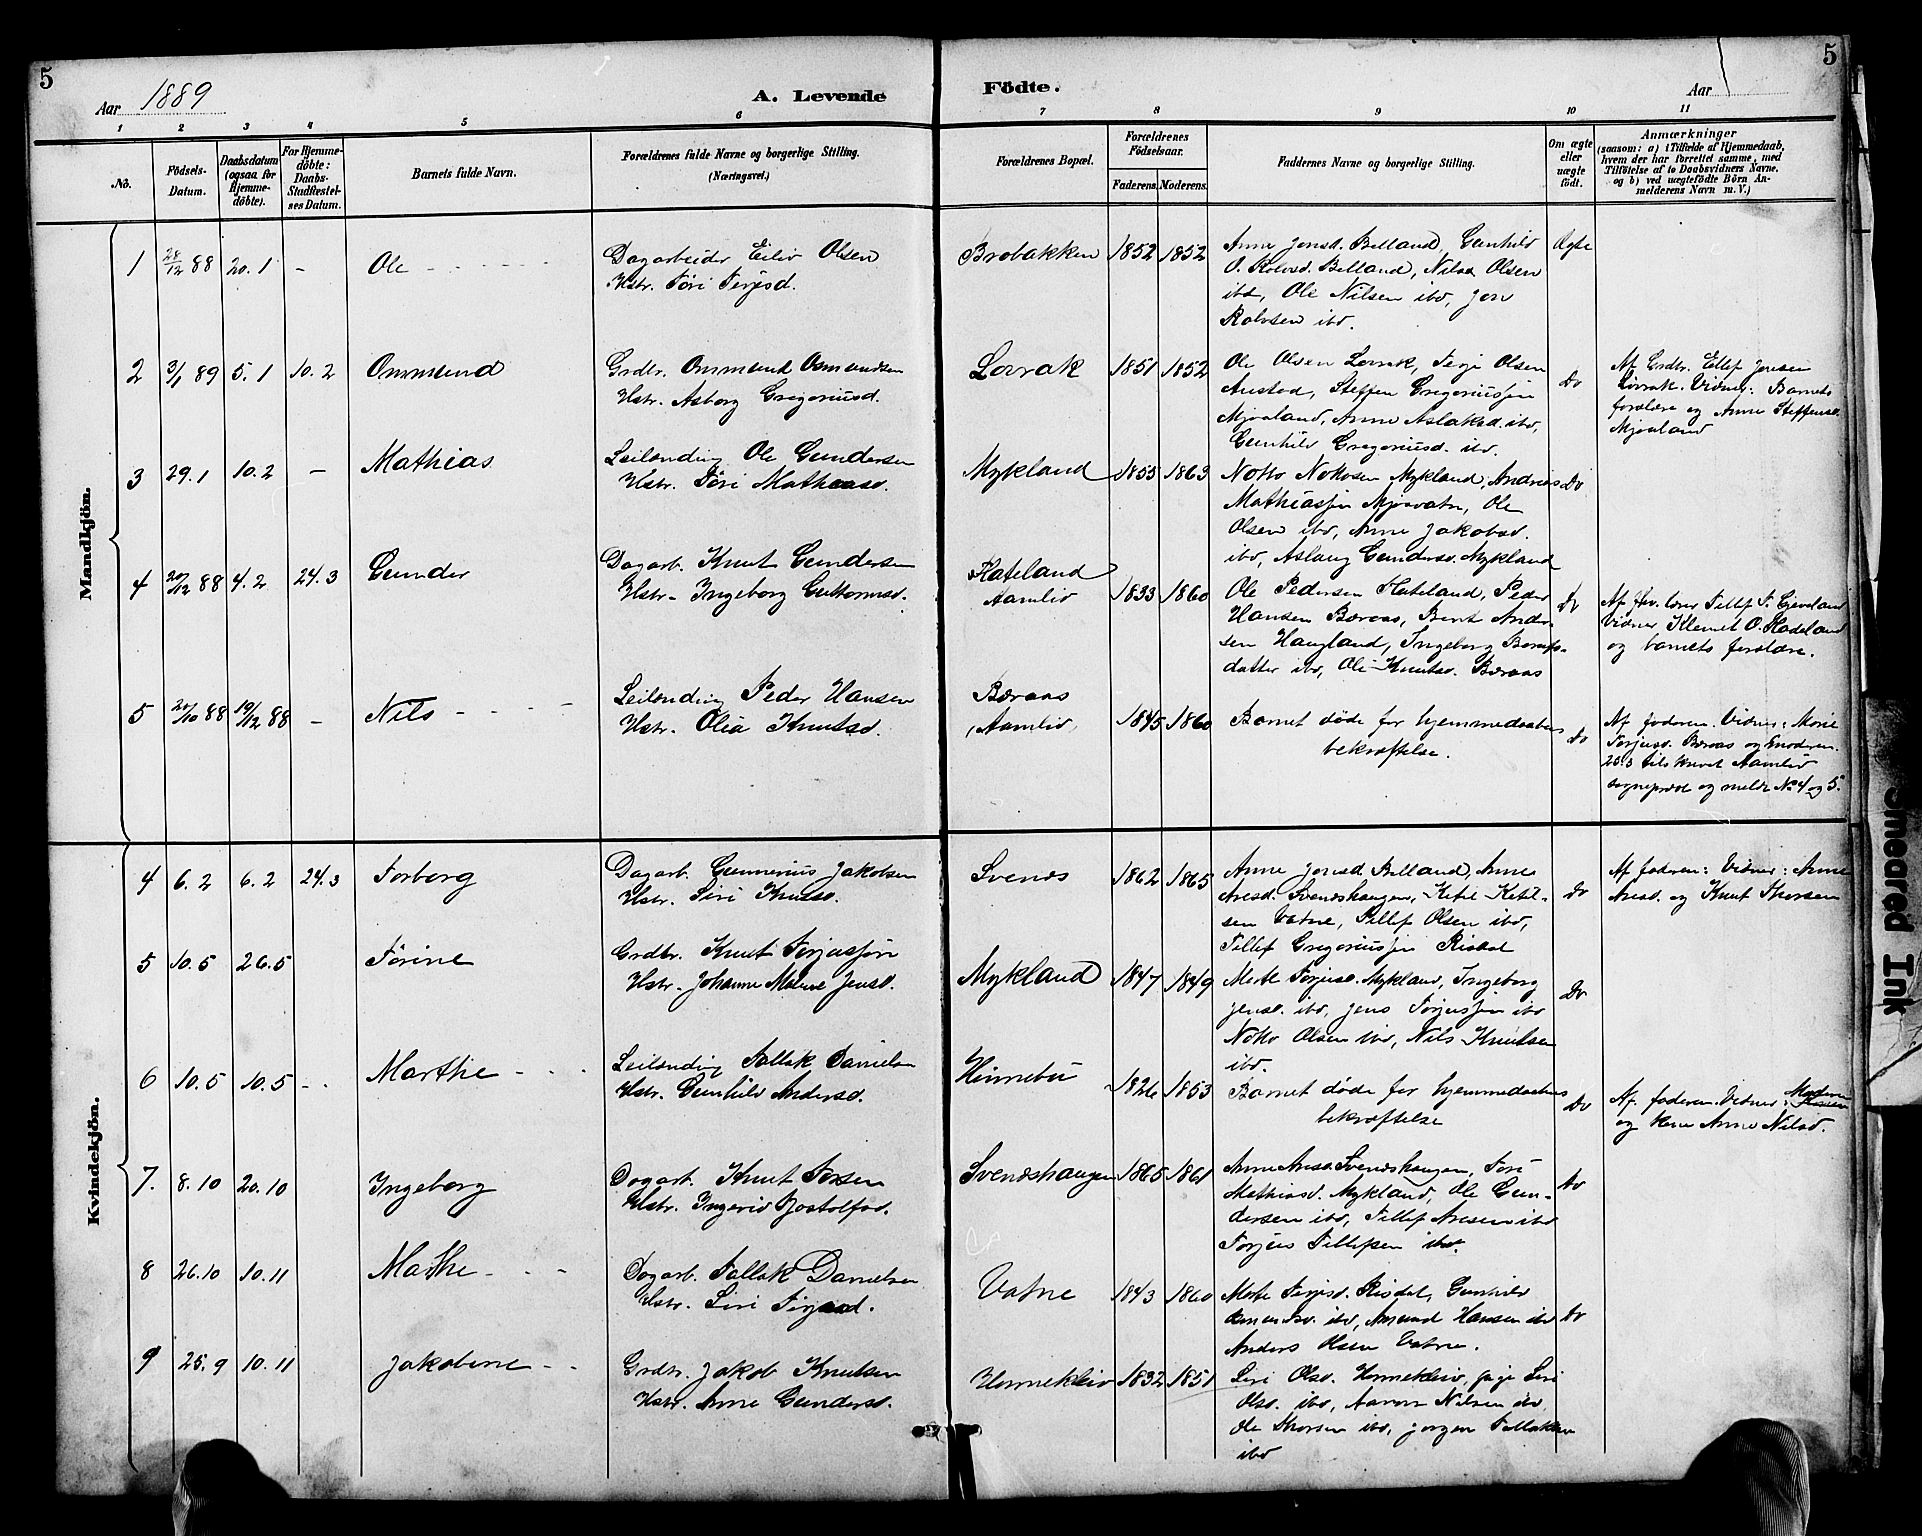 5
5
Aar 1889
A. Levende
Födte.
Aar
1 2 3 4 5 6 7 8 9 10 11
No.
Födsels-
Datum.
Daabsdatum
(ogsaa for
Hjemme-
döbte).
For Hjemme-
döbte:
Daabs-
Stadfæstel-
ses Datum.
Barnets fulde Navn.
Forældrenes fulde Navne og borgerlige Stilling.
(Næringsvei.)
Forældrenes Bopæl.
Forældrenes
Födselsaar.
Faderens. Moderens.
Faddernes Navne og borgerlige Stilling.
Om ægte
eller
uægte
födt.
Anmærkninger
(saasom: a) i Tilfælde af Hjemmedaab,
hvem der har forrettet samme, med
Tilföielse af to Daabsvidners Navne.
og b) ved uægtefödte Börn An-
melderens Navn m. V.)
Mandkjön.
1 28/12 88 20.1 - Ole
Dagarbeider Eiliv Olsen
Hstr. Töri Terjesd.
Brobakken 1852 1852
Anne Jensd. Belland, Gunhild
O. Rolvsd. Belland, Nils Olsen
ibd, Ole Nilsen ibd, Jon
Rolvsen ibd.
Ægte
2 3/1 89 5.1 10.2 Ommund
Grdbr. Ommund Osmundsen
Hstr. Asborg Gregoriusd.
Lovrak 1851 1852
Ole Olsen Lovrak, Terje Olsen
Austad, Steffen Gregoriussen
Mjaaland, Anne Aslaksd. ibd,
Gunhild Gregoriusd. ibd.
Do
Af Grdbr. Ellef Jensen
Lovrak. Vidner: Barnets
forældre og Anne Steffensd.
Mjaaland
3 29.1 10.2 - Mathias
Leilænding Ole Gundersen
Hstr. Töri Mathiasd.
Mykland 1855 1863
Notto Nottosen Mykland, Andreas
Mathiassen Mjaavatn, Ole
Olsen ibd, Anne Jakobsd.
ibd, Aslaug Gundersd. Mykland
Do
4 20/12 88 4.2 24.3 Gunder
Dagarb. Knut Gundersen
Hstr. Ingeborg Guttormsd.
Hateland
Aamliv 1833 1860
Ole Pedersen Hateland, Peder
Hansen Beraas, Bent Ander-
sen Haugland, Ingeborg
datter ibd, Ole Knutsd. Beraas
Do
Af fhv. lærer Tellef T.
Vidner Klemet O. Hadeland
og barnets forældre.
5 21/10 88 19/12 88 - Nils
Leilænding Peder Hansen
Hstr. Olia Knutsd.
Beraas
(Aamliv) 1845 1860
Barnet döde før hjemmedaabens
bekræftelse.
Do
Af faderen. Vidner: Marie
Terjesd. Beraas og moderen.
25.3 tilskrevet Aamliv
sogneprest og meldt No 4 og 5.
Kvindekjön.
4 6.2 6.2 24.3 Torborg
Dagarb. Gunnerius Jakobsen
Hstr. Siri Knutsd.
Svends 1862 1865
Anne Jensd. Belland, Anne
Aresd. Svendshaugen, Ketil Ketil-
sen Vatne, Tellef Olsen ibd,
Tellef Gregoriussen Risdal
Do
Af faderen: Vidner: Anne
Aresd. og Knut Thorsen
5 10.5 26.5 Törine
Grdbr. Knut Terjussön
Hstr. Johanne Malene Jensd.
Mykland 1847 1849
Merte Terjusd. Mykland, Ingeborg
Jensd. ibd, Jens Terjussen ibd
Notto Olsen ibd, Nils Knutsen
ibd.
Do
6 10.5 10.5 - Marthe
Leilænding Tallak Danielsen
Hstr. Gunhild Andersd.
Hinnebu 1826 1853
Barnet döde før hjemmedaabens
bekræftelse
Do
Af faderen. Vidner: Moderen
og Anne Nilsd.
7. 8.10 20.10 Ingeborg
Dagarb. Knut Torsen
Hstr. Ingerid Rostolfsd.
Svendshaugen 1865 1861
Anne Aresd. Svendshaugen, Töri
Mathiasd. Mykland, Ole Gun-
dersen ibd, Tellef Aresen ibd
Torjus Tellefsen ibd.
Do
8 26.10 10.11 Mathe
Dagarb. Tallak Danielsen
Hstr. Siri Terjesd.
Vatne 1843 1860
Merte Terjesd. Risdal, Gunhild
ibd, Amund Hansen ibd
Anders Olsen Vatne.
Do
9 25.9 10.11 Jakobine
Grdbr. Jakob Knutsen
Hstr. Anne Gundersd.
Hinnekleiv 1832 1851
Siri Olsd. Hinnekleiv, pige Siri
Olsd. ibd, Aavon Nilsen ibd
Ole Thorsen ibd, Jorgen Tellaksen
ibd
Smeared Ink